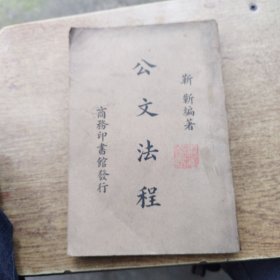 靳斳編著
公文法程
商務印書館發行